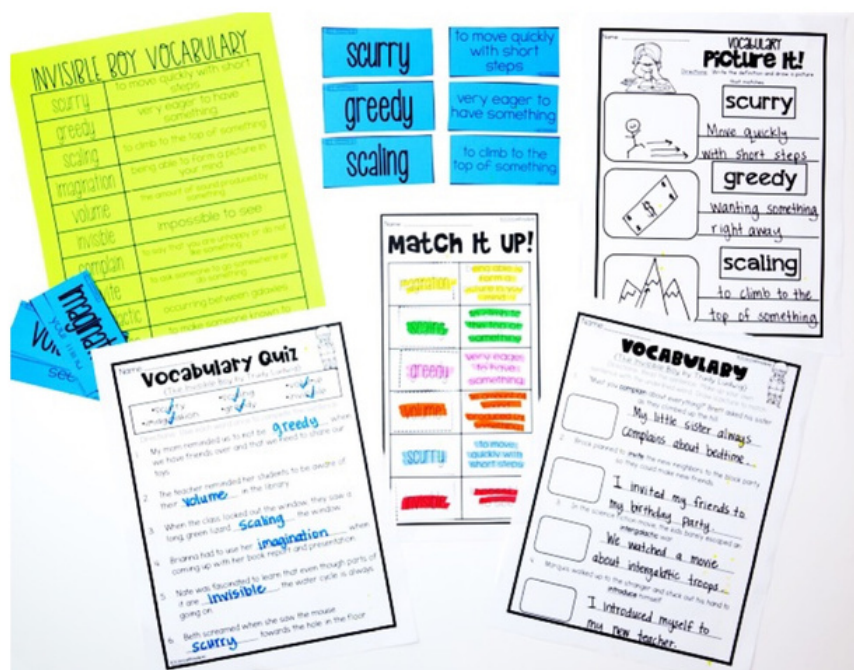 INVISIBLE BOY VOCABULARY
scurry
to move quickly with short
steps
greedy
very eager to have
something
scaling
to climb to the top of something
imagination
being able to form a picture in
your mind
volume
the amount of sound produced by
something
invisible
impossible to see
complain
to say that you are unhappy or do not
like something
to ask someone to go somewhere or
do something
occurring between galaxies
to make someone known to
scurry
to move quickly
with short
steps
greedy
very eager to
have something
scaling
to climb to the
top of something
Name
VOCABULARY
PICTURE IT!
Directions: Write the definition and draw a picture
that matches.
scurry
Move quickly
with short steps
greedy
$
Wanting something
right away
scaling
to climb to the
top of something
Name
MATCH IT UP!
scaling
greedy
very eager
to have
something
volume
scurry
to move
quickly with
short steps
invisible
Name
Vocabulary Quiz
(The Invisible Boy by Trudy Ludwig)
scurry
scaling
volume
imagination
greedy
invisible
1. My mom reminded us to not be greedy when
we have friends over and that we need to share our
toys.
2. The teacher reminded her students to be aware of
their volume in the library.
3. When the class looked out the window, they saw a
long, green lizard scaling the window.
4. Brianna had to use her imagination when
coming up with her book report and presentation.
5. Nate was fascinated to learn that even though parts of
it are invisible, the water cycle is always
going on.
6. Beth screamed when she saw the mouse
scurry towards the hole in the floor.
Name
VOCABULARY
(The Invisible Boy by Trudy Ludwig)
1. "Must you complain about everything?" Brett asked his sister
as they climbed up the hill.
My little sister always
complains about bedtime.
2. Brock planned to invite the new neighbors to the block party
so they could make new friends.
I invited my friends to
my birthday party.
3. In the science fiction movie, the kids barely escaped an
intergalactic war.
We watched a movie
about intergalactic troops.
4. Marquis walked up to the stranger and stuck out his hand to
introduce himself.
I introduced myself to
my new teacher.